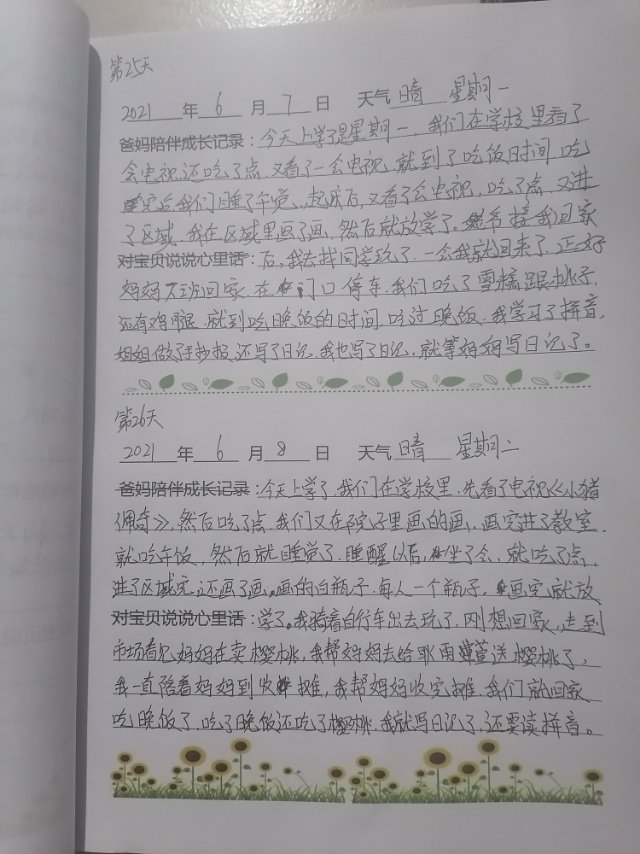 第25天
2021 年 6 月 7 日 天气 晴 星期一
爸妈陪伴成长记录：今天上学了是星期一，我们在学校里看了
会电视，还吃了点，又看了一会电视，就到了吃饭时间，吃
完后我们睡了午觉，起床后，又看了会电视，吃了点，又进
了区域，我在区域里画了画，然后就放学了，爷爷接我回家
对宝贝说说心里话：后，我去找同学玩了，一会我就回来了，正好
妈妈下班回家，在门口停车，我们吃了雪糕跟桃子，
还有鸡腿，就到吃晚饭的时间，吃过晚饭，我学习了拼音，
姐姐做手抄报，还写了日记，我也写了日记，就等妈妈写日记了。
第26天
2021 年 6 月 8 日 天气 晴 星期二
爸妈陪伴成长记录：今天上学了，我们在学校里，先看了电视《小猪
佩奇》，然后吃了点，我们又在院子里画的画，画完进了教室，
就吃午饭，然后就睡觉了，睡醒以后，坐了会，就吃了点，
进了区域完，还画了画，画的白瓶子，每人一个瓶子，画完就放
对宝贝说说心里话：学了。我骑着自行车出去玩了，刚想回家，走到
市场看见妈妈在卖樱桃，我帮妈妈去给耿雨萱送樱桃了，
我一直陪着妈妈到收摊，我帮妈妈收完摊，我们就回家
吃晚饭了，吃了晚饭还吃了樱桃，我就写日记了，还要读拼音。